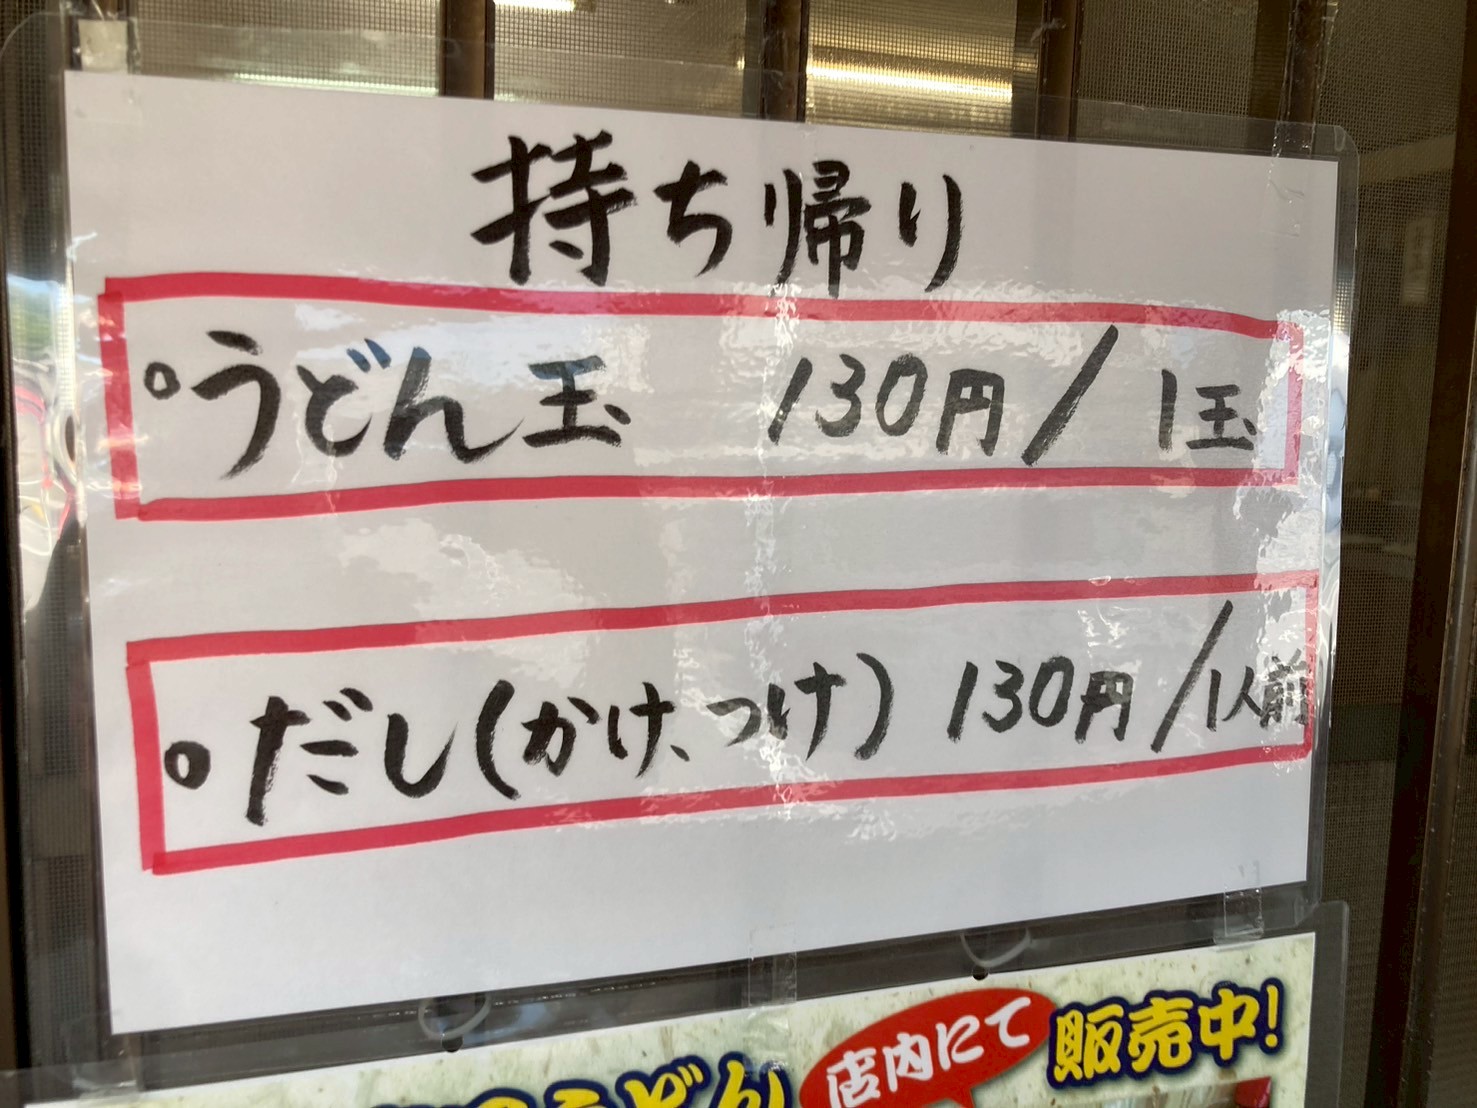 持ち帰り
。うどん玉 130円/1玉
。だし(かけ、つけ) 130円/1人前
うどん 店内にて 販売中!